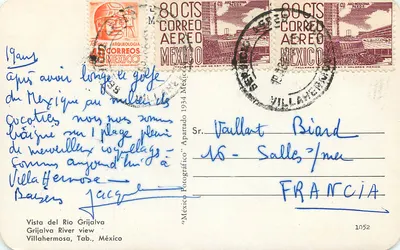 19 avril
après avoir longé le golfe
du Mexique au milieu des
cocotiers nous nous sommes
baigné sur 1 plage pleine
de merveilleux coquillages -
Sommes aujourd'hui à
Villa Hermosa -
Baisers
ARQUEOLOGIA
CORREOS
MEXICO
80 CTS
CORREO
AEREO
MEXICO
80 CTS
CORREO
AEREO
MEXICO
VILLAHERMOSA
"México Fotográfico" Apartado 1934 México
Sr. Vaillant Biard
16 - Salles s/mer
FRANCIA
Vista del Río Grijalva
Grijalva River view
Villahermosa, Tab., México
1052